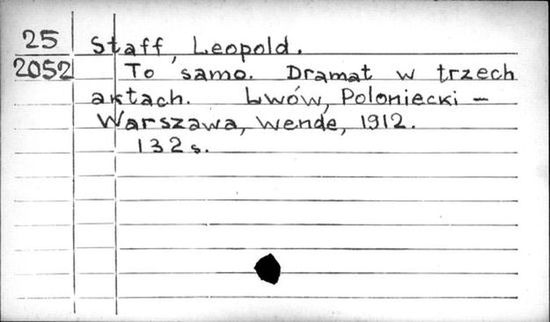 25 Staff, Leopold.
2052 To samo. Dramat w trzech
aktach. Lwów, Poloniecki -
Warszawa, Wende, 1912.
132 s.